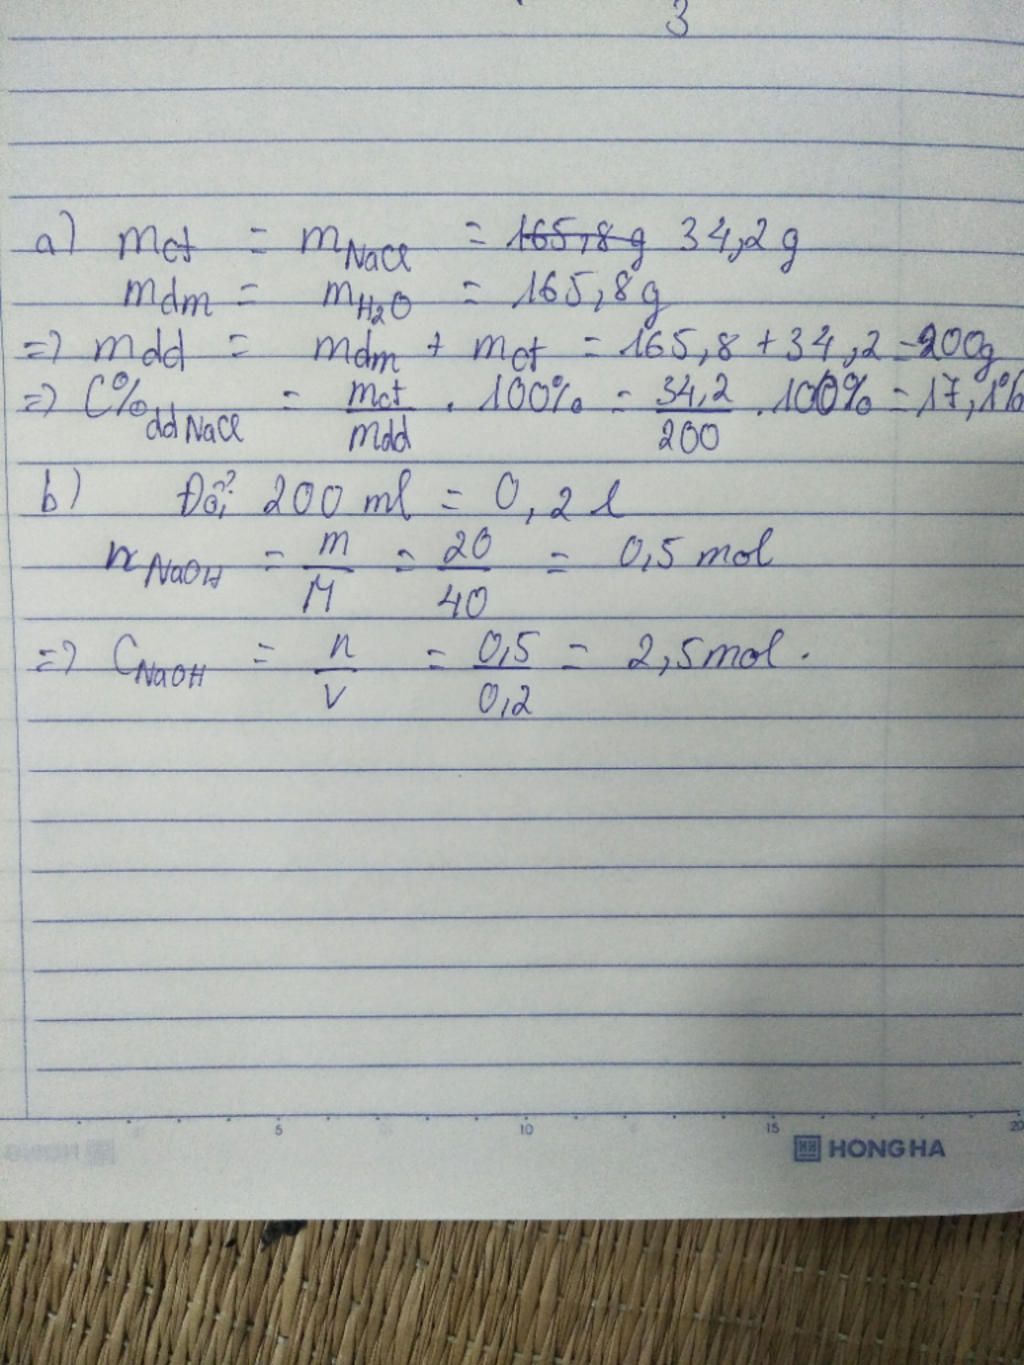 3
a) mct = mNaCl = 165,8g 34,2g
mdm = mH2O = 165,8g
=> mdd = mdm + mct = 165,8 + 34,2 = 200g
=> C%ddNaCl = mct/mdd . 100% = 34,2/200 . 100% = 17,1%
b) Đổi: 200 ml = 0,2 l
nNaOH = m/M = 20/40 = 0,5 mol
=> CNaOH = n/V = 0,5/0,2 = 2,5 mol.
5 10 15 20
HONG HA